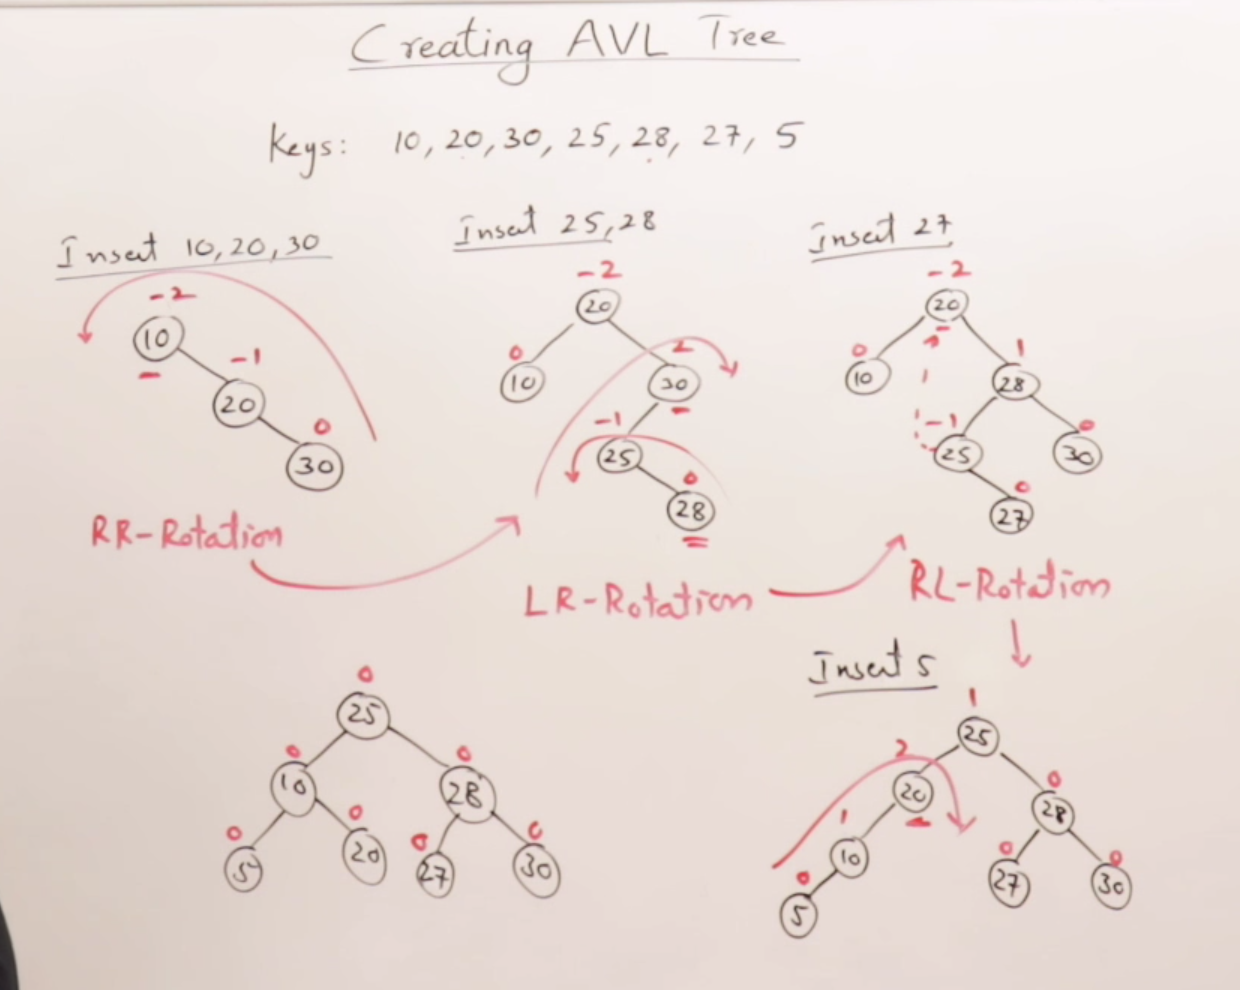 Creating AVL Tree
Keys: 10, 20, 30, 25, 28, 27, 5
Insert 10,20,30
-2
10
-1
20
0
30
RR-Rotation
Insert 25,28
-2
20
0
10
2
30
-1
25
0
28
LR-Rotation
Insert 27
-2
20
0
10
1
28
-1
25
0
30
0
27
RL-Rotation
Insert 5
1
25
2
20
0
28
1
10
0
27
0
30
0
5
0
25
0
10
0
28
0
5
0
20
0
27
0
30